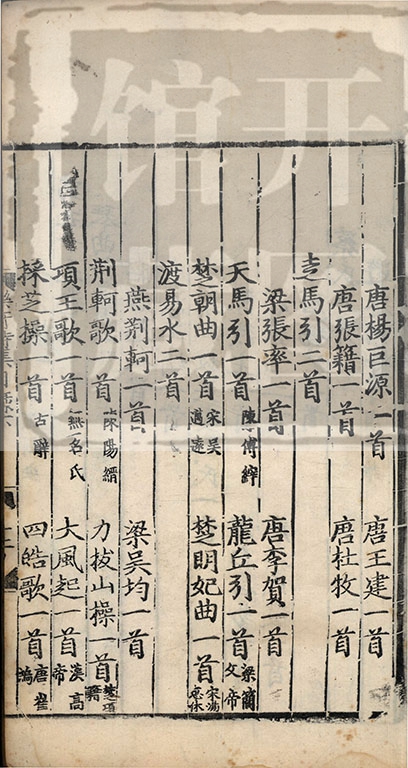 唐楊巨源一首 唐王建一首
唐張籍一首 唐杜牧一首
走馬引二首
梁張率一首 唐李賀一首
天馬引一首 陳傅縡 龍丘引一首 梁簡文帝
楚朝曲一首 宋吳邁遠 楚明妃曲一首 宋湯惠休
渡易水二首
燕荆軻一首 梁吳均一首
荆軻歌一首 陳陽縉 力拔山操一首 楚項籍
項王歌一首 無名氏 大風起一首 漢高帝
採芝操一首 古辭 四皓歌一首 唐崔鴻